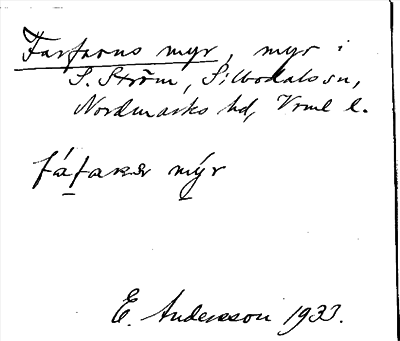 Farfarns myr, myr i
S. Ström, Silbodals sn,
Nordmarks hd, Vrml l.
fáfaʀər mýr
E. Andersson 1933.